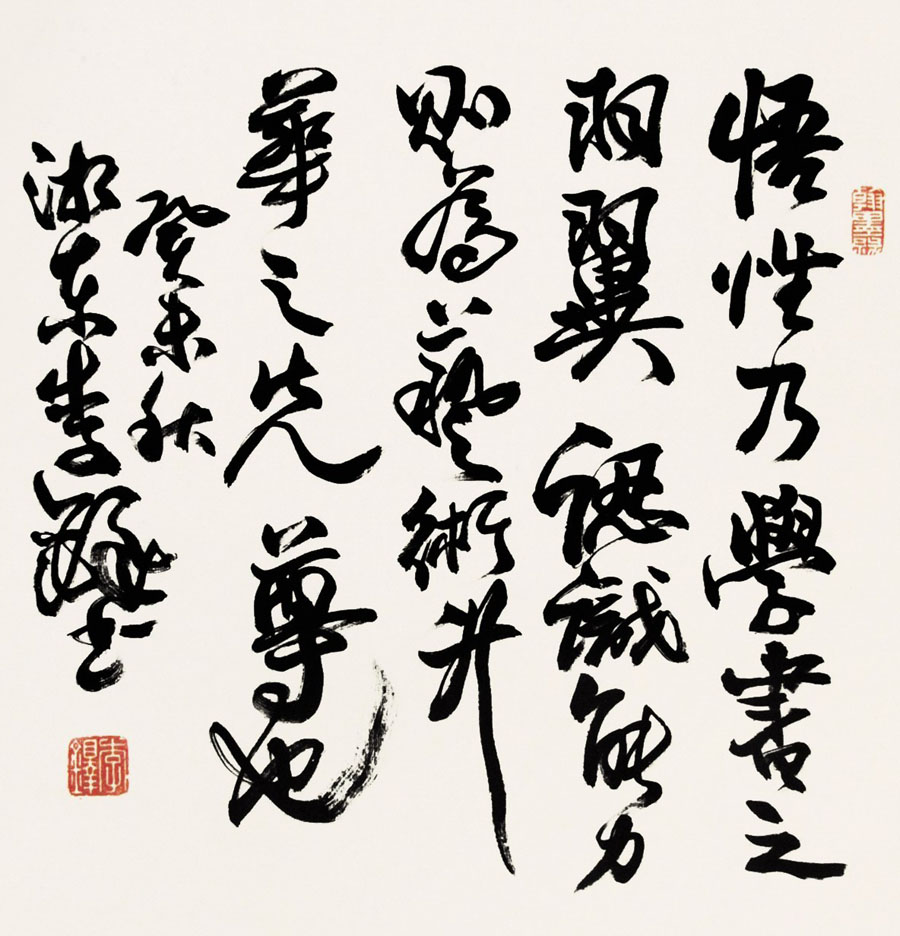 悟性乃學書之
羽翼認識能力
則為藝術升
華之先尊也
癸未秋
湖東李書